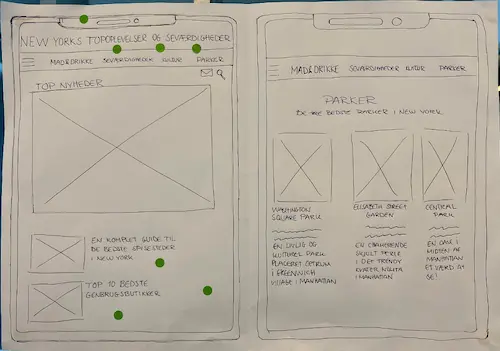 NEW YORKS TOPOPLEVELSER OG SEVÆRDIGHEDER
MAD&DRIKKE SEVÆRDIGHEDER KULTUR PARKER
TOP NYHEDER
EN KOMPLET GUIDE TIL
DE BEDSTE SPISESTEDER
I NEW YORK
TOP 10 BEDSTE
GENBRUGSBUTIKKER
MAD&DRIKKE SEVÆRDIGHEDER KULTUR PARKER
PARKER
DE BEDSTE PARKER I NEW YORK
WASHINGTON
SQUARE PARK
EN LIVLIG OG
KULTUREL PARK
PLACERET CETRUM
I GREENWICH
VILLAGE I MANHATTAN
ELISABETH STREET
GARDEN
EN
SKJULT PERLE
I DET TRENDY
KVATER NOLITA
I MANHATTAN
CENTRAL
PARK
EN OASE I
MIDTEN AF
MANHATTAN
ET VÆRD AT
SE!